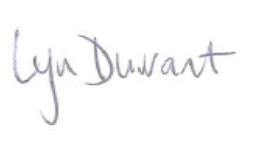 Lyn Durrant